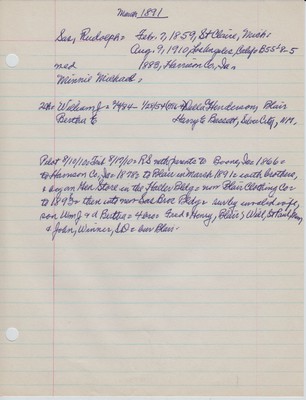 March 1891
Sas, Rudolph= Feb. 7, 1859, St Claire, Mich=
Aug. 9, 1910, Los Angeles, Calif= B55-8-5
md 1883, Harrison Co, Ia=
Minnie
2ch= William J= Della Henderson, Blair
Bertha E Harry G Bassett, Silver City, N.M.
Pilot 8/10/10= Trib 8/17/10= RS with parents to Boone, Ia= 1866=
to Harrison Co, Ia= 1878= to Blair in March 1891= with brothers,
Gen Store in the Haller Bldg= now Blair Clothing Co=
to 1893= then into new Sas Bros Bldg= surv by invalid wife,
son Wm J= & d Bertha= 4 bros= Fred & Henry, Blair; Will, St Paul, Minn,
& John, Winner, SD= bur Blair=